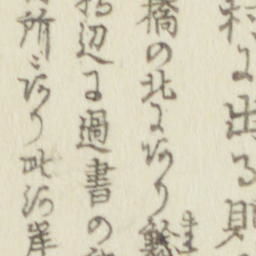 村に出る則
橋の北にあり
辺に過書の
所にあり此河岸